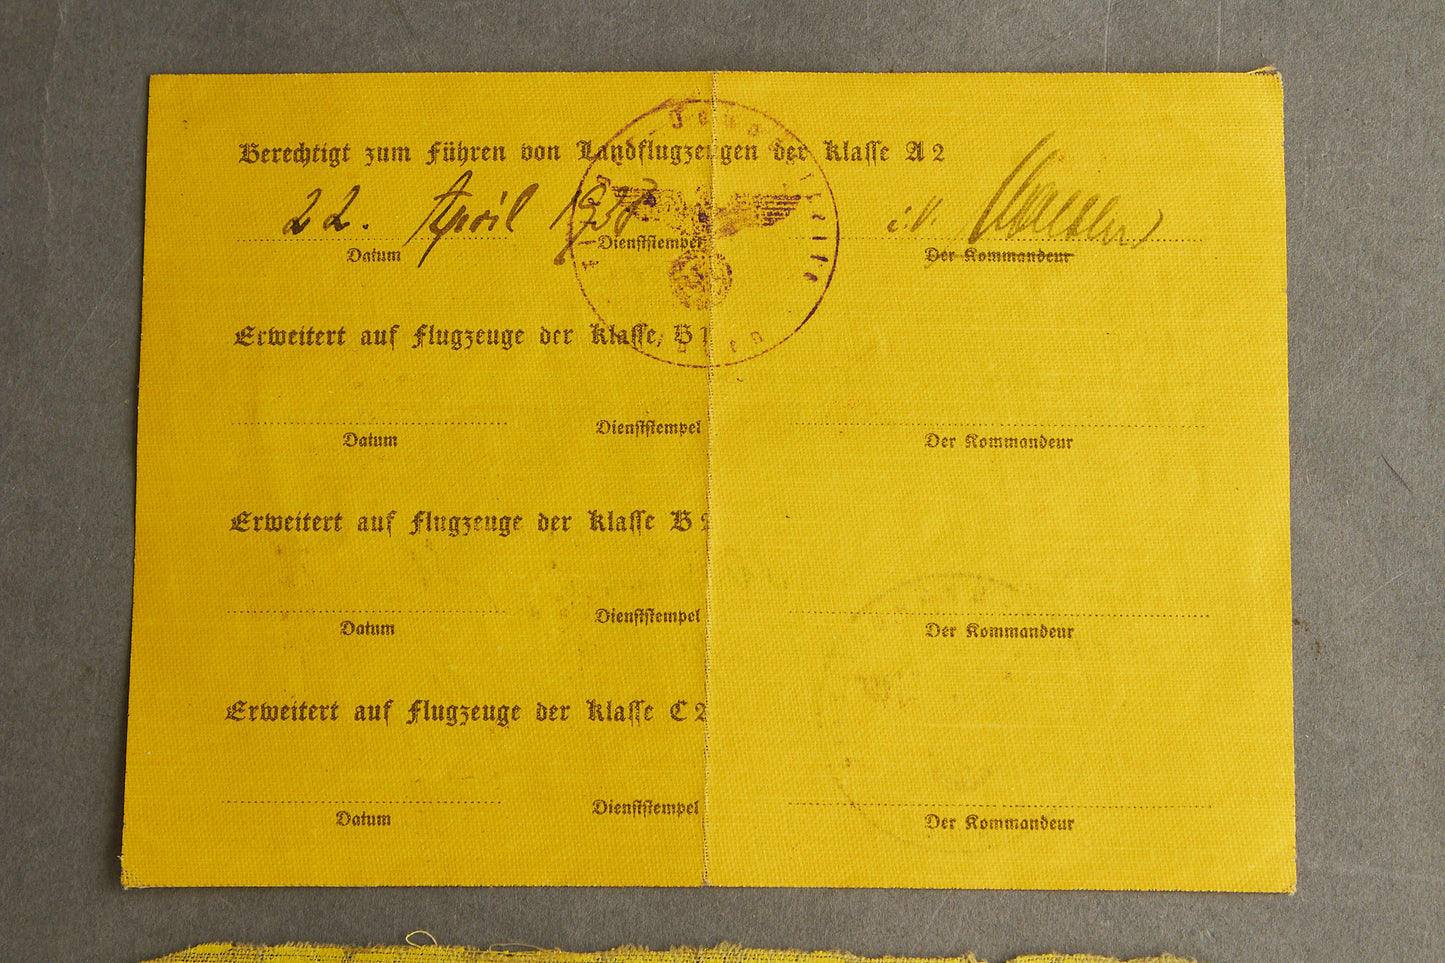 Berechtigt zum Führen von Landflugzeugen der Klasse A 2
22. April 1938 i.V.
Datum Dienststempel Der Kommandeur
Erweitert auf Flugzeuge der Klasse B 1
Datum Dienststempel Der Kommandeur
Erweitert auf Flugzeuge der Klasse B 2
Datum Dienststempel Der Kommandeur
Erweitert auf Flugzeuge der Klasse C 2
Datum Dienststempel Der Kommandeur